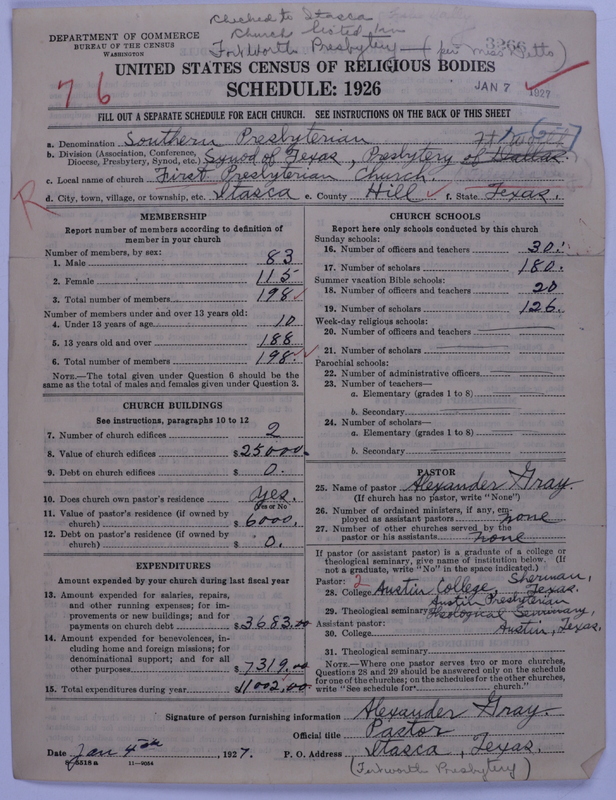 Checked to Itasca
Church listed in
Fort Worth Presbytery — (per Miss
3266
DEPARTMENT OF COMMERCE
BUREAU OF THE CENSUS
WASHINGTON
UNITED STATES CENSUS OF RELIGIOUS BODIES
SCHEDULE: 1926
JAN 7 1927
76
FILL OUT A SEPARATE SCHEDULE FOR EACH CHURCH. SEE INSTRUCTIONS ON THE BACK OF THIS SHEET
a. Denomination Southern Presbyterian
Ft Worth
b. Division (Association, Conference, Diocese, Presbytery, Synod, etc.) Synod of Texas, Presbytery of Dallas.
c. Local name of church First Presbyterian Church.
R
d. City, town, village, or township, etc. Itasca e. County Hill f. State Texas.
MEMBERSHIP
Report number of members according to definition of
member in your church
Number of members, by sex:
1. Male 83
2. Female 115
3. Total number of members 198
Number of members under and over 13 years old:
4. Under 13 years of age 10
5. 13 years old and over 188
6. Total number of members 198
NOTE.—The total given under Question 6 should be the
same as the total of males and females given under Question 3.
CHURCH BUILDINGS
See instructions, paragraphs 10 to 12
7. Number of church edifices 2
8. Value of church edifices $25000.
9. Debt on church edifices $ 0.
10. Does church own pastor's residence Yes.
(Yes or No)
11. Value of pastor's residence (if owned by
church) $ 6000.
12. Debt on pastor's residence (if owned by
church) $ 0.
EXPENDITURES
Amount expended by your church during last fiscal year
13. Amount expended for salaries, repairs,
and other running expenses; for im-
provements or new buildings; and for
payments on church debt $3683.00
14. Amount expended for benevolences, in-
cluding home and foreign missions; for
denominational support; and for all
other purposes $7319.00
15. Total expenditures during year $11002.00
CHURCH SCHOOLS
Report here only schools conducted by this church
Sunday schools:
16. Number of officers and teachers 30.
17. Number of scholars 180.
Summer vacation Bible schools:
18. Number of officers and teachers 20
19. Number of scholars 126.
Week-day religious schools:
20. Number of officers and teachers
21. Number of scholars
Parochial schools:
22. Number of administrative officers
23. Number of teachers—
a. Elementary (grades 1 to 8)
b. Secondary
24. Number of scholars—
a. Elementary (grades 1 to 8)
b. Secondary
PASTOR
25. Name of pastor Alexander Gray.
(If church has no pastor, write "None")
26. Number of ordained ministers, if any, em-
ployed as assistant pastors none
27. Number of other churches served by the
pastor or his assistants none
If pastor (or assistant pastor) is a graduate of a college or
theological seminary, give name of institution below. (If
not a graduate, write "No" in the space indicated.)
Pastor: 2
28. College Austin College, Sherman, Texas.
29. Theological seminary Austin Presbyterian Theological Seminary, Austin, Texas.
Assistant pastor:
30. College
31. Theological seminary
NOTE.—Where one pastor serves two or more churches,
Questions 28 and 29 should be answered only on the schedule
for one of the churches; on the schedules for the other churches,
write "See schedule for church."
Signature of person furnishing information Alexander Gray.
Official title Pastor
Date Jan 4th, 1927. P. O. Address Itasca, Texas.
8-5518 a 11—9054
(Fort Worth Presbytery)